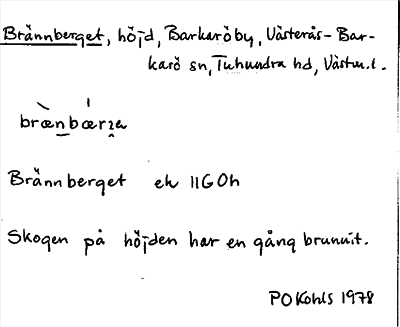 Brännberget, höjd, Barkaröby, Västerås-Bar-
karö sn, Tuhundra hd, Västm.l.
brænbærʒa
Brännberget ek 11G0h
Skogen på höjden har en gång brunnit.
PO Kohls 1978